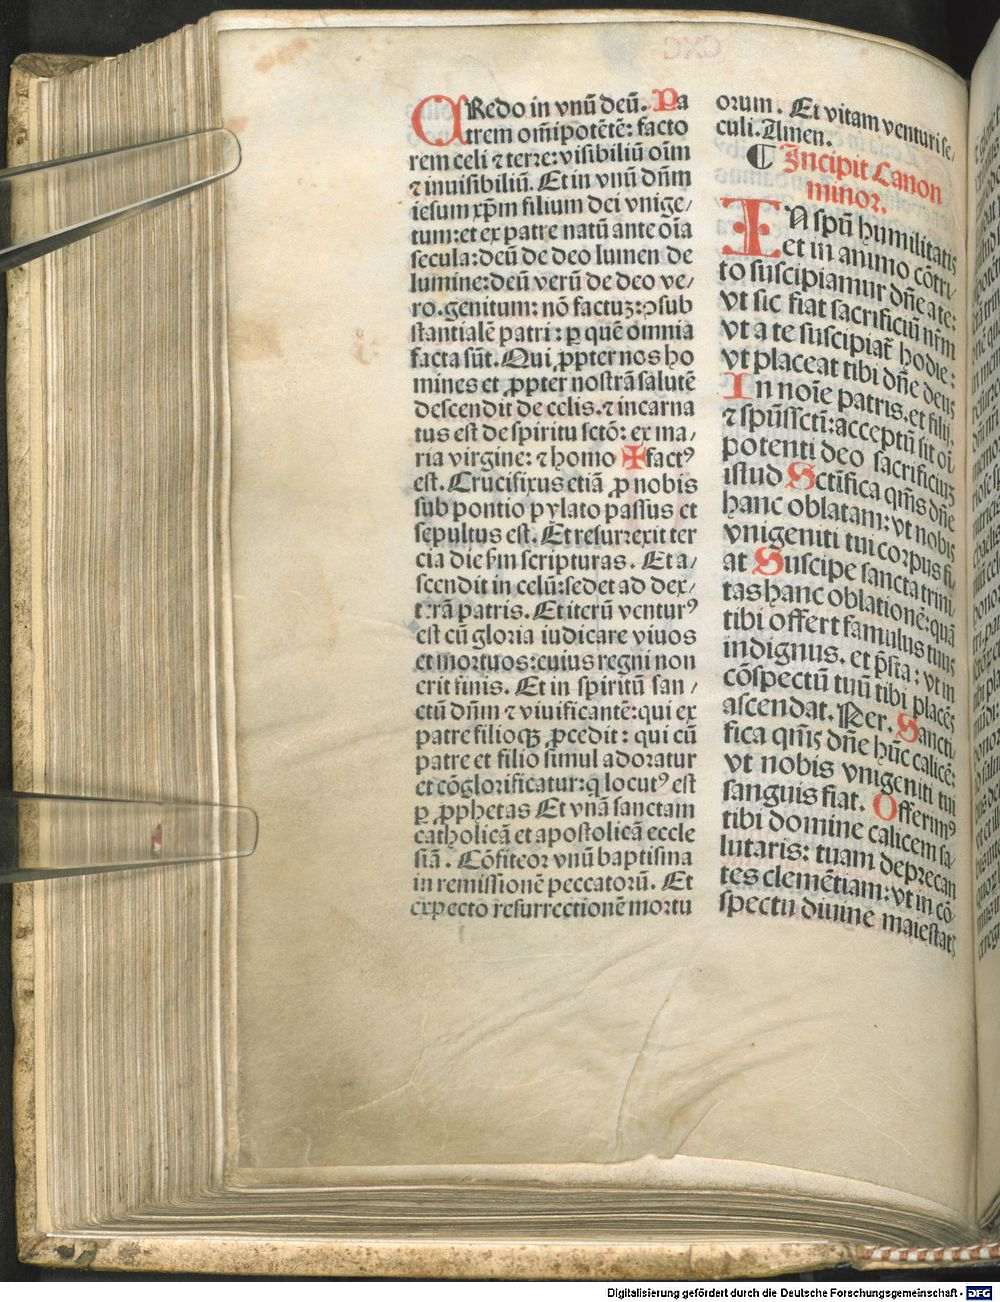 CRedo in vnū deū. Pa
trem om̄ipotētē: facto
rem celi ⁊ terre: visibiliū oīm
⁊ inuisibiliū. Et in vnū dn̄m
iesum xp̄m filium dei vnige/
tum: et ex patre natū ante oīa
secula: deū de deo lumen de
lumine: deū verū de deo ve/
ro. genitum: nō factuꝫ: ↄsub
stantialē patri: ꝑ quē omnia
facta sūt. Qui ꝓpter nos ho
mines et ꝓpter nostrā salutē
descendit de celis. ⁊ incarna
tus est de spiritu sctō: ex ma/
ria virgine: ⁊ homo ✠ factꝰ
est. Crucifixus etiā ꝓ nobis
sub pontio pylato passus et
sepultus est. Et resurrexit ter
cia die ẜm scripturas. Et a/
scendit in celū: sedet ad dex/
terā patris. Et iterū venturꝰ
est cū gloria iudicare viuos
et mortuos: cuius regni non
erit finis. Et in spiritū san/
ctū dn̄m ⁊ viuificantē: qui ex
patre filioqꝫ ꝓcedit: qui cū
patre et filio simul adoratur
et cōglorificatur: q locutꝰ est
ꝑ ꝓphetas Et vnā sanctam
catholicā et apostolicā eccle
siā. Cōfiteor vnū baptisma
in remissionē peccatorū. Et
expecto resurrectionē mortu
orum. Et vitam venturi se/
culi. Amen.
¶ Incipit Canon
minor.
IN spū humilitatis
et in animo cōtri/
to suscipiamur dn̄e a te:
vt sic fiat sacrificiū nr̄m
vt a te suscipiat̄ hodie:
vt placeat tibi dn̄e deus
In noīe patris. et filij.
⁊ spūssctī: acceptū sit oī/
potenti deo sacrificiuꝫ
istud Sctīfica qm̄s dn̄e
hanc oblatam: vt nobis
vnigeniti tui corpus fi/
at Suscipe sancta trini/
tas hanc oblationē: quā
tibi offert famulus tuus
indignus. et p̄sta: vt in
cōspectū tuū tibi placēs
ascendat. Per. Sancti/
fica qm̄s dn̄e hūc calicē:
vt nobis vnigeniti tui
sanguis fiat. Offerimꝰ
tibi domine calicem sa/
lutaris: tuam deprecan
tes clemētiam: vt in cō/
spectu diuine maiestatꝭ
Digitalisierung gefördert durch die Deutsche Forschungsgemeinschaft - DFG